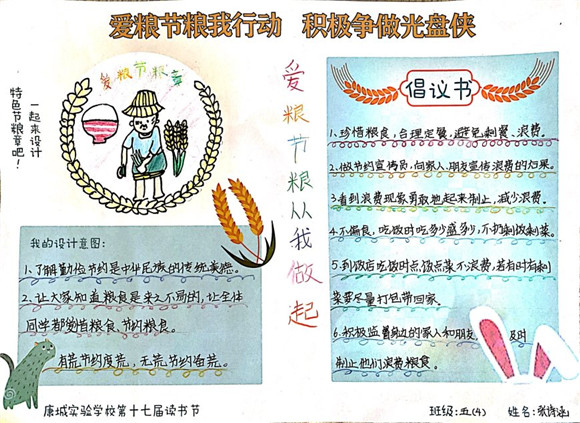 爱粮节粮我行动 积极争做光盘侠
一起来设计
特色节粮章吧！
爱粮节粮章
我的设计意图：
1.了解勤俭节约是中华民族的传统美德。
2.让大家知道粮食是来之不易的，让全体
同学都爱惜粮食，节约粮食。
有荒节约度荒，无荒节约备荒。
康城实验学校第十七届读书节
爱粮节粮从我做起
倡议书
1.珍惜粮食，合理定餐，避免剩餐、浪费。
2.做节约宣传员，向家人、朋友宣传浪费的后果。
3.看到浪费现象勇敢地起来制止，减少浪费。
4.不偏食，吃饭时吃多少盛多少，不扔剩饭剩菜。
5.到饭店吃饭时点饭点菜不浪费，若有时有剩
菜要尽量打包带回家。
6.积极监督身边的家人和朋友， 及时
制止他们浪费粮食。
班级：五(4) 姓名：张